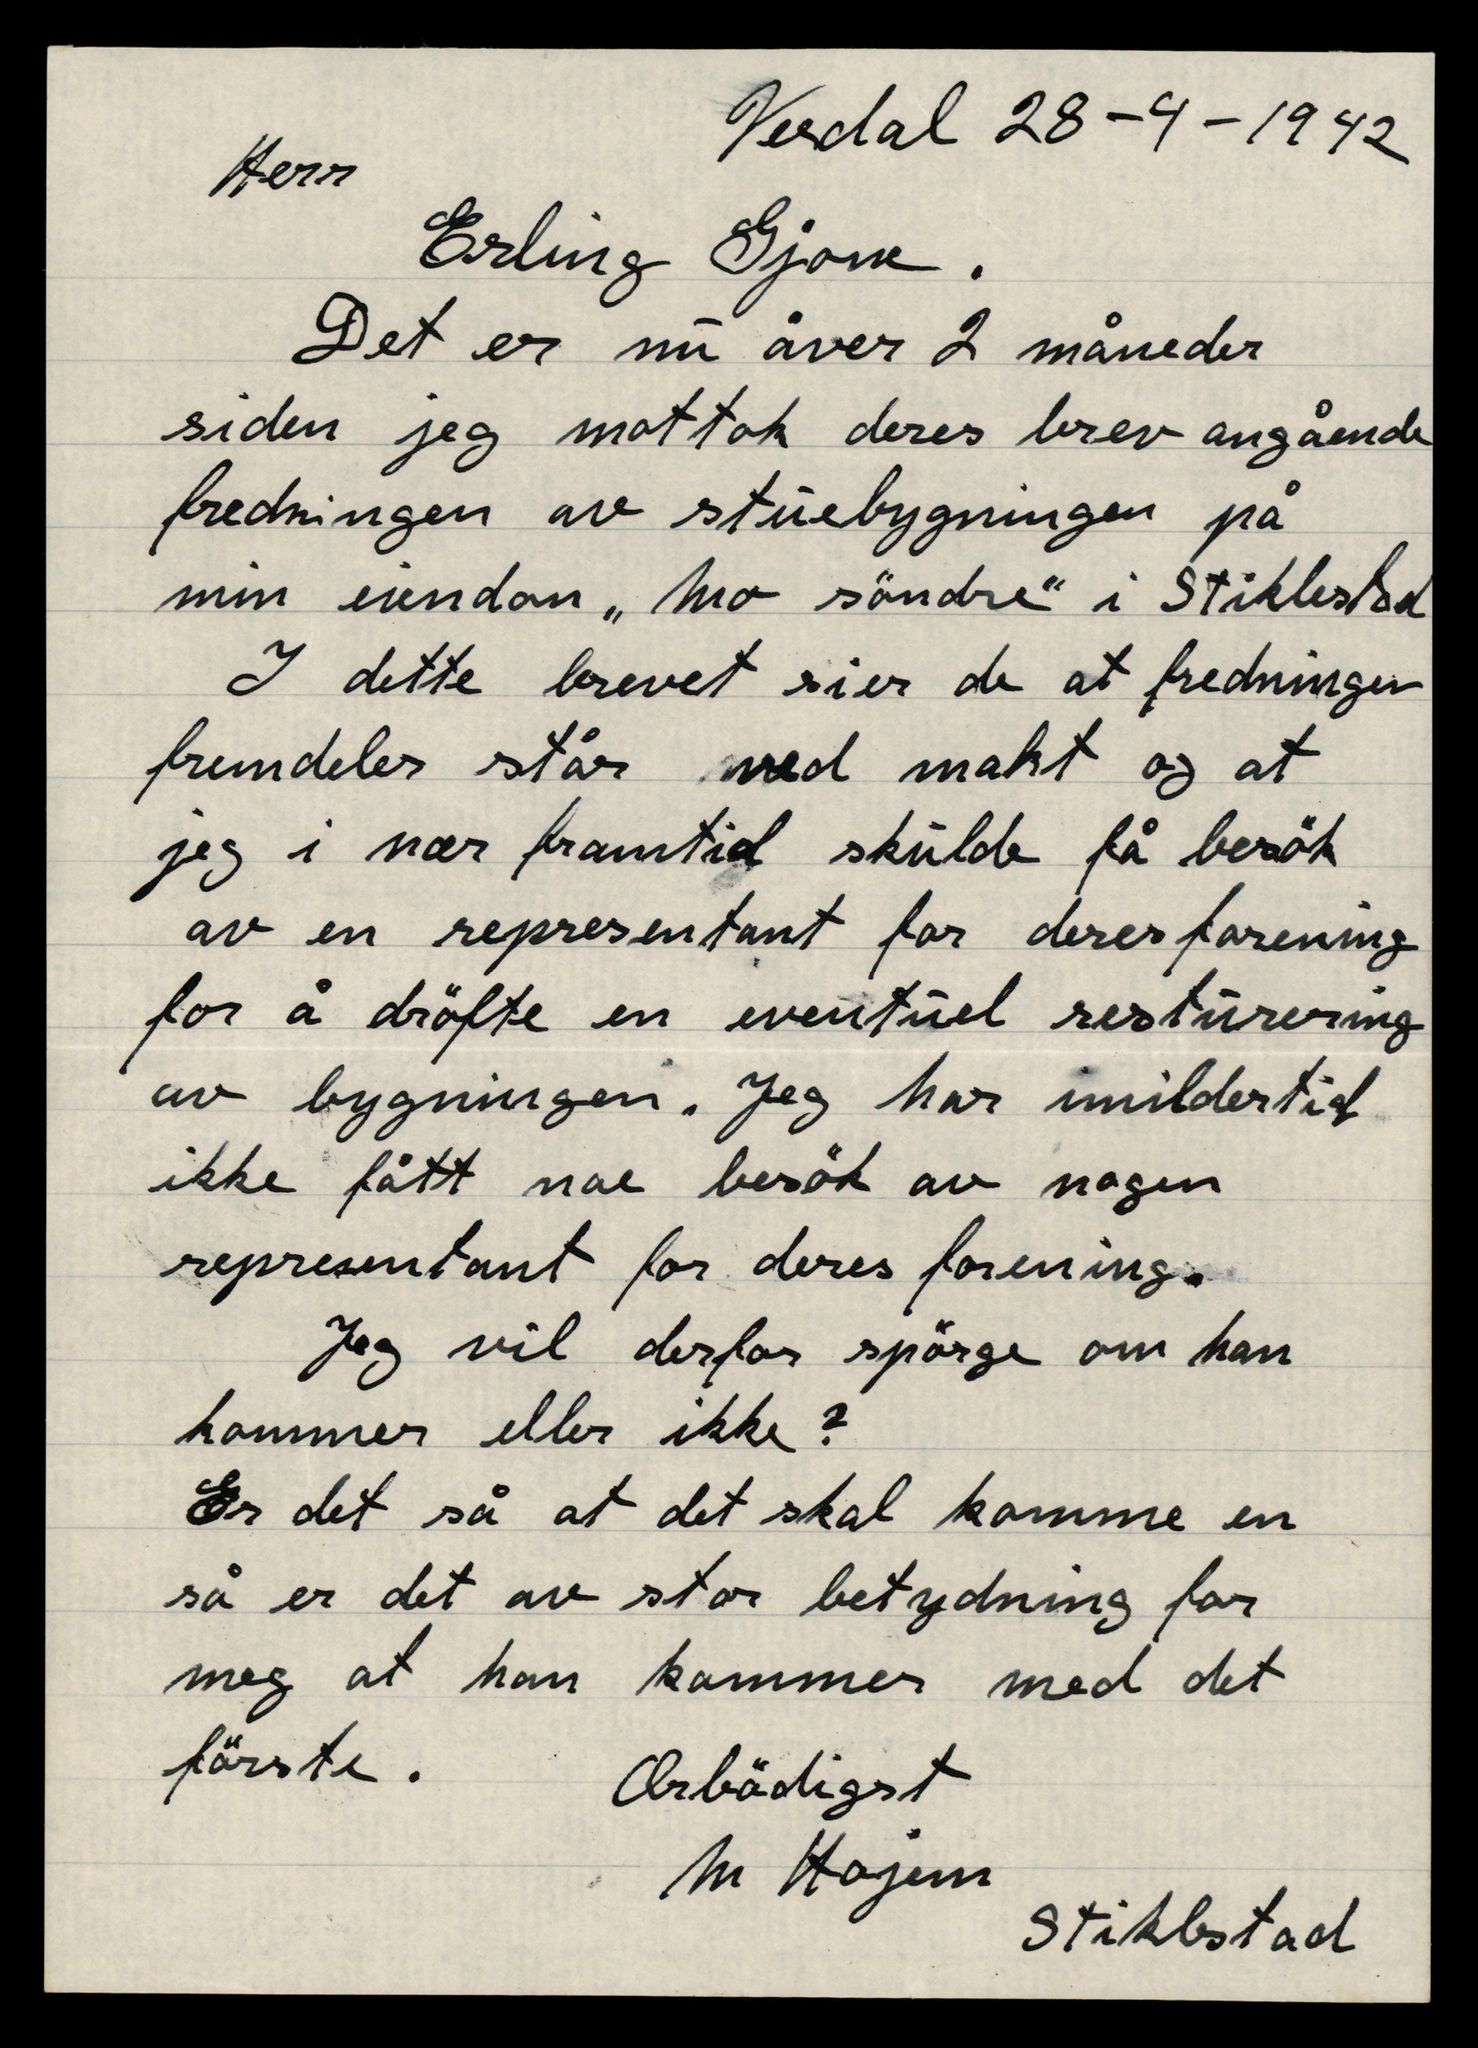 Verdal 28-4-1942
Herr
Erling Gjone.
Det er nu åver 2 måneder
siden jeg mottok deres brev angående
fredningen av stuebygningen på
min eiendon „Mo söndre" i Stiklestad
I dette brevet sier de at fredningen
fremdeles står ved makt og at
jeg i nær framtid skulde få besök
av en representant for deres forening
for å dröfte en eventuel resturering
av bygningen. Jeg har imildertid
ikke fått noe besök av nogen
representant for deres forening.
Jeg vil derfor spörge om han
kommer eller ikke?
Er det så at det skal komme en
så er det av stor betydning for
meg at han kommer med det
förste.
Ærbödigst
M Hojem
Stiklestad